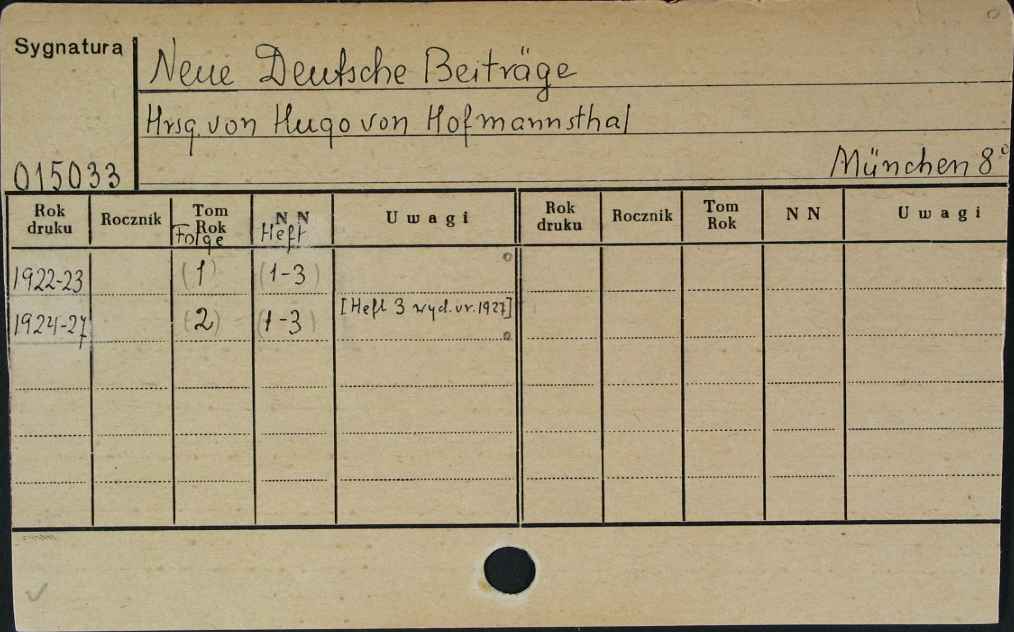 Sygnatura
Neue Deutsche Beiträge
Hrsg. von Hugo von Hofmannsthal
015033
München 8°
Rok druku Rocznik Tom Rok Folge N N Heft Uwagi Rok druku Rocznik Tom Rok N N Uwagi
1922-23 (1) (1-3)
1924-27 (2) (1-3) [Heft 3 wyd. w r. 1927]